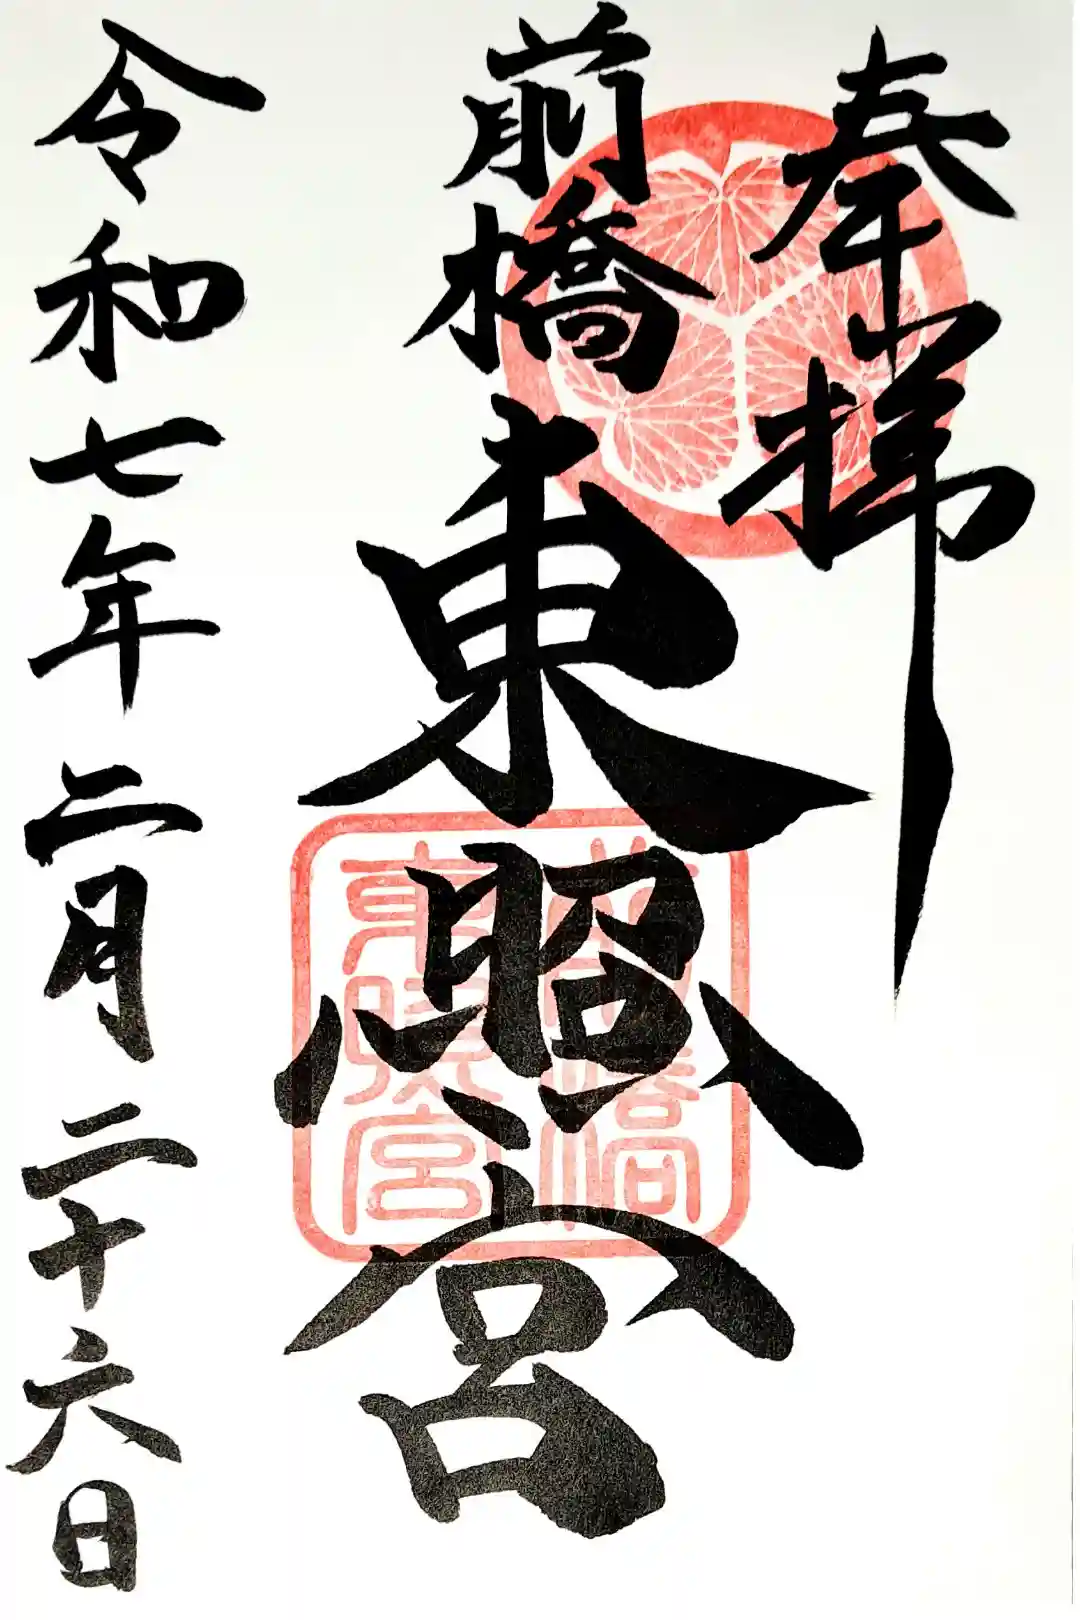 奉拝
前橋東照宮
前橋
東照宮
令和七年二月二十六日